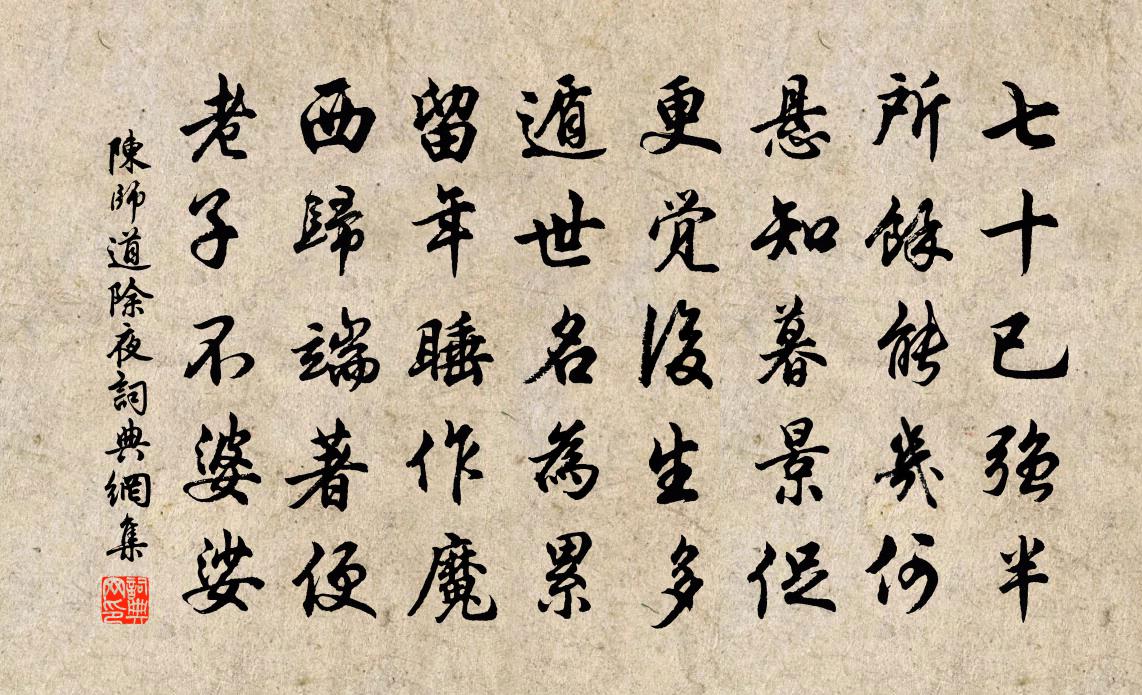 七十已强半
所餘能幾何
悬知暮景促
更覺後生多
遁世名為累
留年睡作魔
西歸端著便
老子不婆娑
陳師道除夜詞典網集
詞典網印